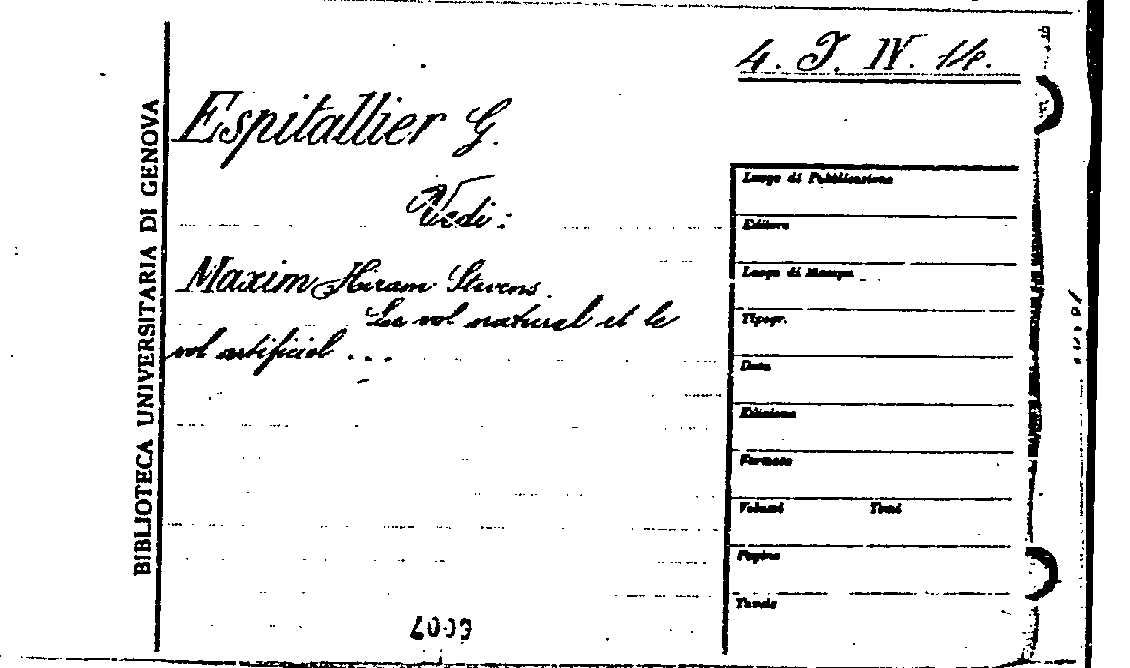 4. J. IV. 14.
BIBLIOTECA UNIVERSITARIA DI GENOVA
Espitallier G.
Vedi:
Maxim Hiram Stevens.
Le vol natural et le
vol artificiel ...
Luogo di Pubblicazione
Editore
Luogo di Stampa
Tipogr.
Data
Edizione
Formato
Volumi Tomi
Pagine
Tavole